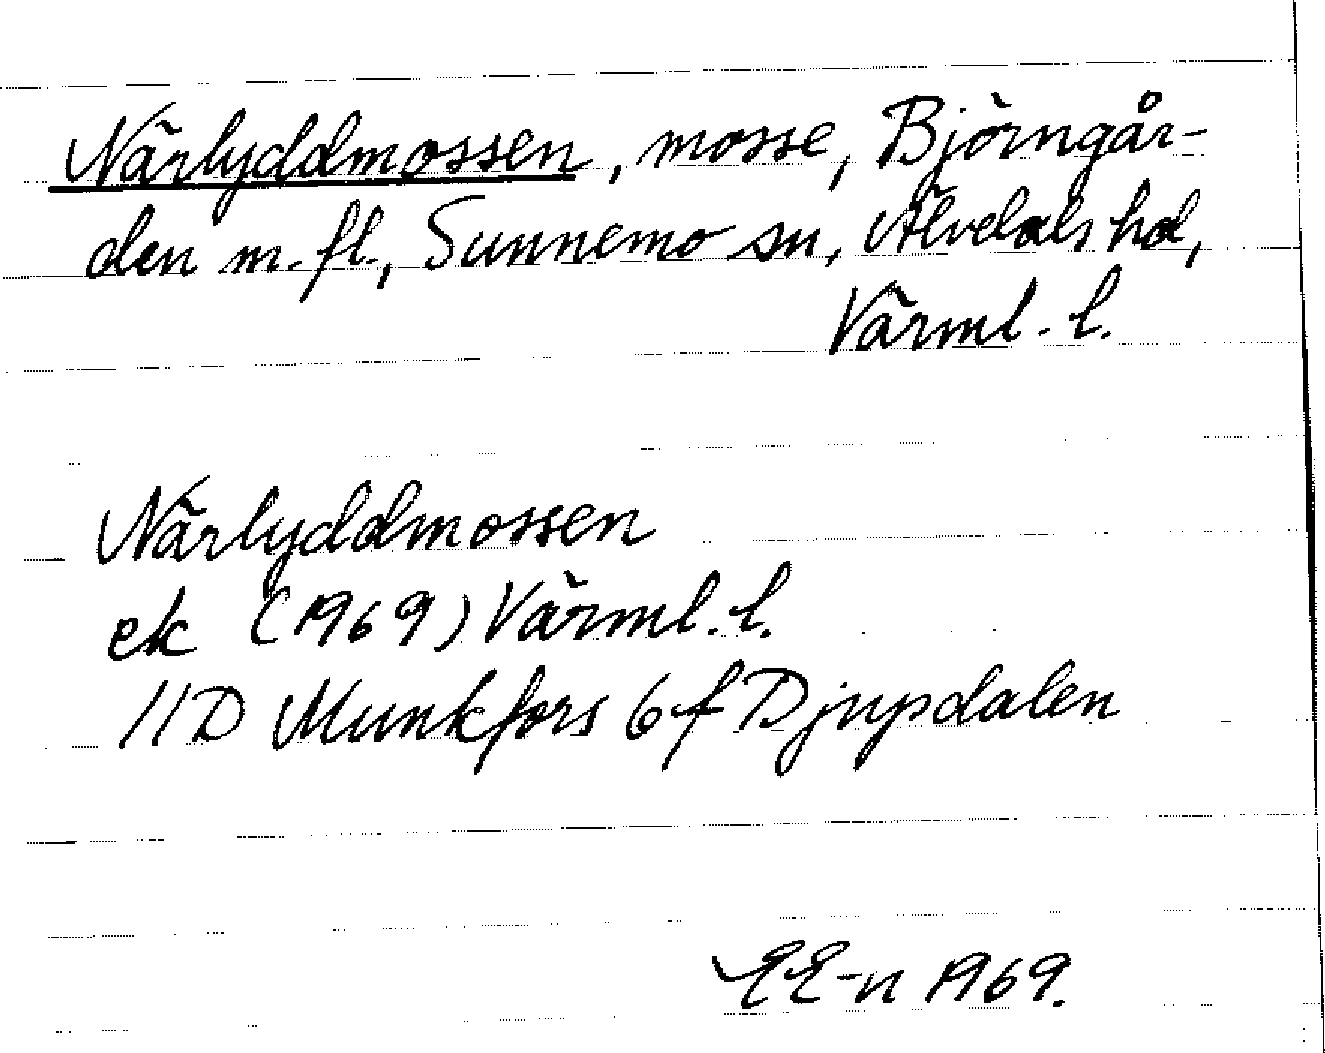 Närlyddmossen, mosse, Björngår-
den m.fl., Sunnemo sn, Älvdals hd,
Värml. l.
Närlyddmossen
ek (1969) Värml. l.
11D Munkfors 6f Djupdalen
EE-n 1969.